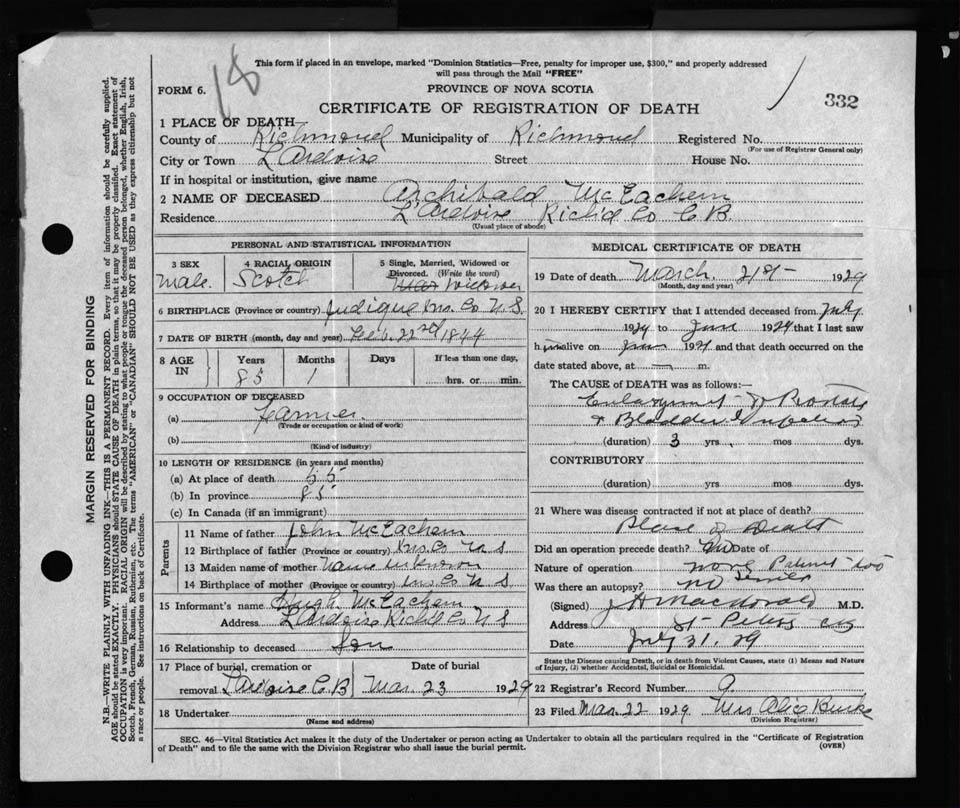 18
This form if placed in an envelope, marked "Dominion Statistics—Free, penalty for improper use, $300," and properly addressed
will pass through the Mail "FREE"
332
FORM 6.
PROVINCE OF NOVA SCOTIA
CERTIFICATE OF REGISTRATION OF DEATH
1 PLACE OF DEATH
County of Richmond Municipality of Richmond Registered No.
(For use of Registrar General only)
City or Town L'Ardoise Street House No.
If in hospital or institution, give name
2 NAME OF DECEASED Archibald McEachern
Residence L'Ardoise Rich'd Co C.B.
(Usual place of abode)
PERSONAL AND STATISTICAL INFORMATION
3 SEX
Male
4 RACIAL ORIGIN
Scotch
5 Single, Married, Widowed or
Divorced. (Write the word)
Widower
6 BIRTHPLACE (Province or country) Judique Inv. Co N.S.
7 DATE OF BIRTH (month, day and year) Feb. 22nd 1844
8 AGE IN
Years Months Days If less than one day,
85 1 hrs. or min.
9 OCCUPATION OF DECEASED
(a) Farmer.
(Trade or occupation or kind of work)
(b)
(Kind of industry)
10 LENGTH OF RESIDENCE (in years and months)
(a) At place of death 55
(b) In province 85
(c) In Canada (if an immigrant)
Parents
11 Name of father John McEachern
12 Birthplace of father (Province or country) Inv. Co N S
13 Maiden name of mother Name unknown
14 Birthplace of mother (Province or country) Inv. Co N S
15 Informant's name Hugh McEachern
Address L'Ardoise Rich'd Co N S
16 Relationship to deceased Son
17 Place of burial, cremation or
removal L'Ardoise C.B
Date of burial
Mar. 23 1929
18 Undertaker
(Name and address)
MEDICAL CERTIFICATE OF DEATH
19 Date of death March 21st 1929
(Month, day and year)
20 I HEREBY CERTIFY that I attended deceased from July
1924 to June 1924 that I last saw
him alive on June 1924 and that death occurred on the
date stated above, at m.
The CAUSE OF DEATH was as follows:—
Enlargement of Prostate
& Bladder Infection
(duration) 3 yrs. mos dys.
CONTRIBUTORY
(duration) yrs. mos. dys.
21 Where was disease contracted if not at place of death?
Place of Death
Did an operation precede death? No Date of
Nature of operation none Patient too
senile
Was there an autopsy? no
(Signed) J A Macdonald M.D.
Address St Peters CB
Date July 31. 29
State the Disease causing Death, or in death from Violent Causes, state (1) Means and Nature
of Injury, (2) whether Accidental, Suicidal or Homicidal.
22 Registrar's Record Number 9.
23 Filed Mar. 22 1929 Mrs Alice Burke
(Division Registrar)
SEC. 46—Vital Statistics Act makes it the duty of the Undertaker or person acting as Undertaker to obtain all the particulars required in the "Certificate of Registration
of Death" and to file the same with the Division Registrar who shall issue the burial permit.
(OVER)
MARGIN RESERVED FOR BINDING
N.B.—WRITE PLAINLY WITH UNFADING INK—THIS IS A PERMANENT RECORD. Every item of information should be carefully supplied.
AGE should be stated EXACTLY. PHYSICIANS should STATE CAUSE OF DEATH in plain terms, so that it may be properly classified. Exact statement of
OCCUPATION is very important. RACIAL ORIGIN will be described by stating to what people or tongue the deceased person belonged, whether English, Irish,
Scotch, French, German, Russian, Ruthenian, etc. The terms "AMERICAN" or "CANADIAN" SHOULD NOT BE USED as they express citizenship but not
a race or people. See instructions on back of Certificate.